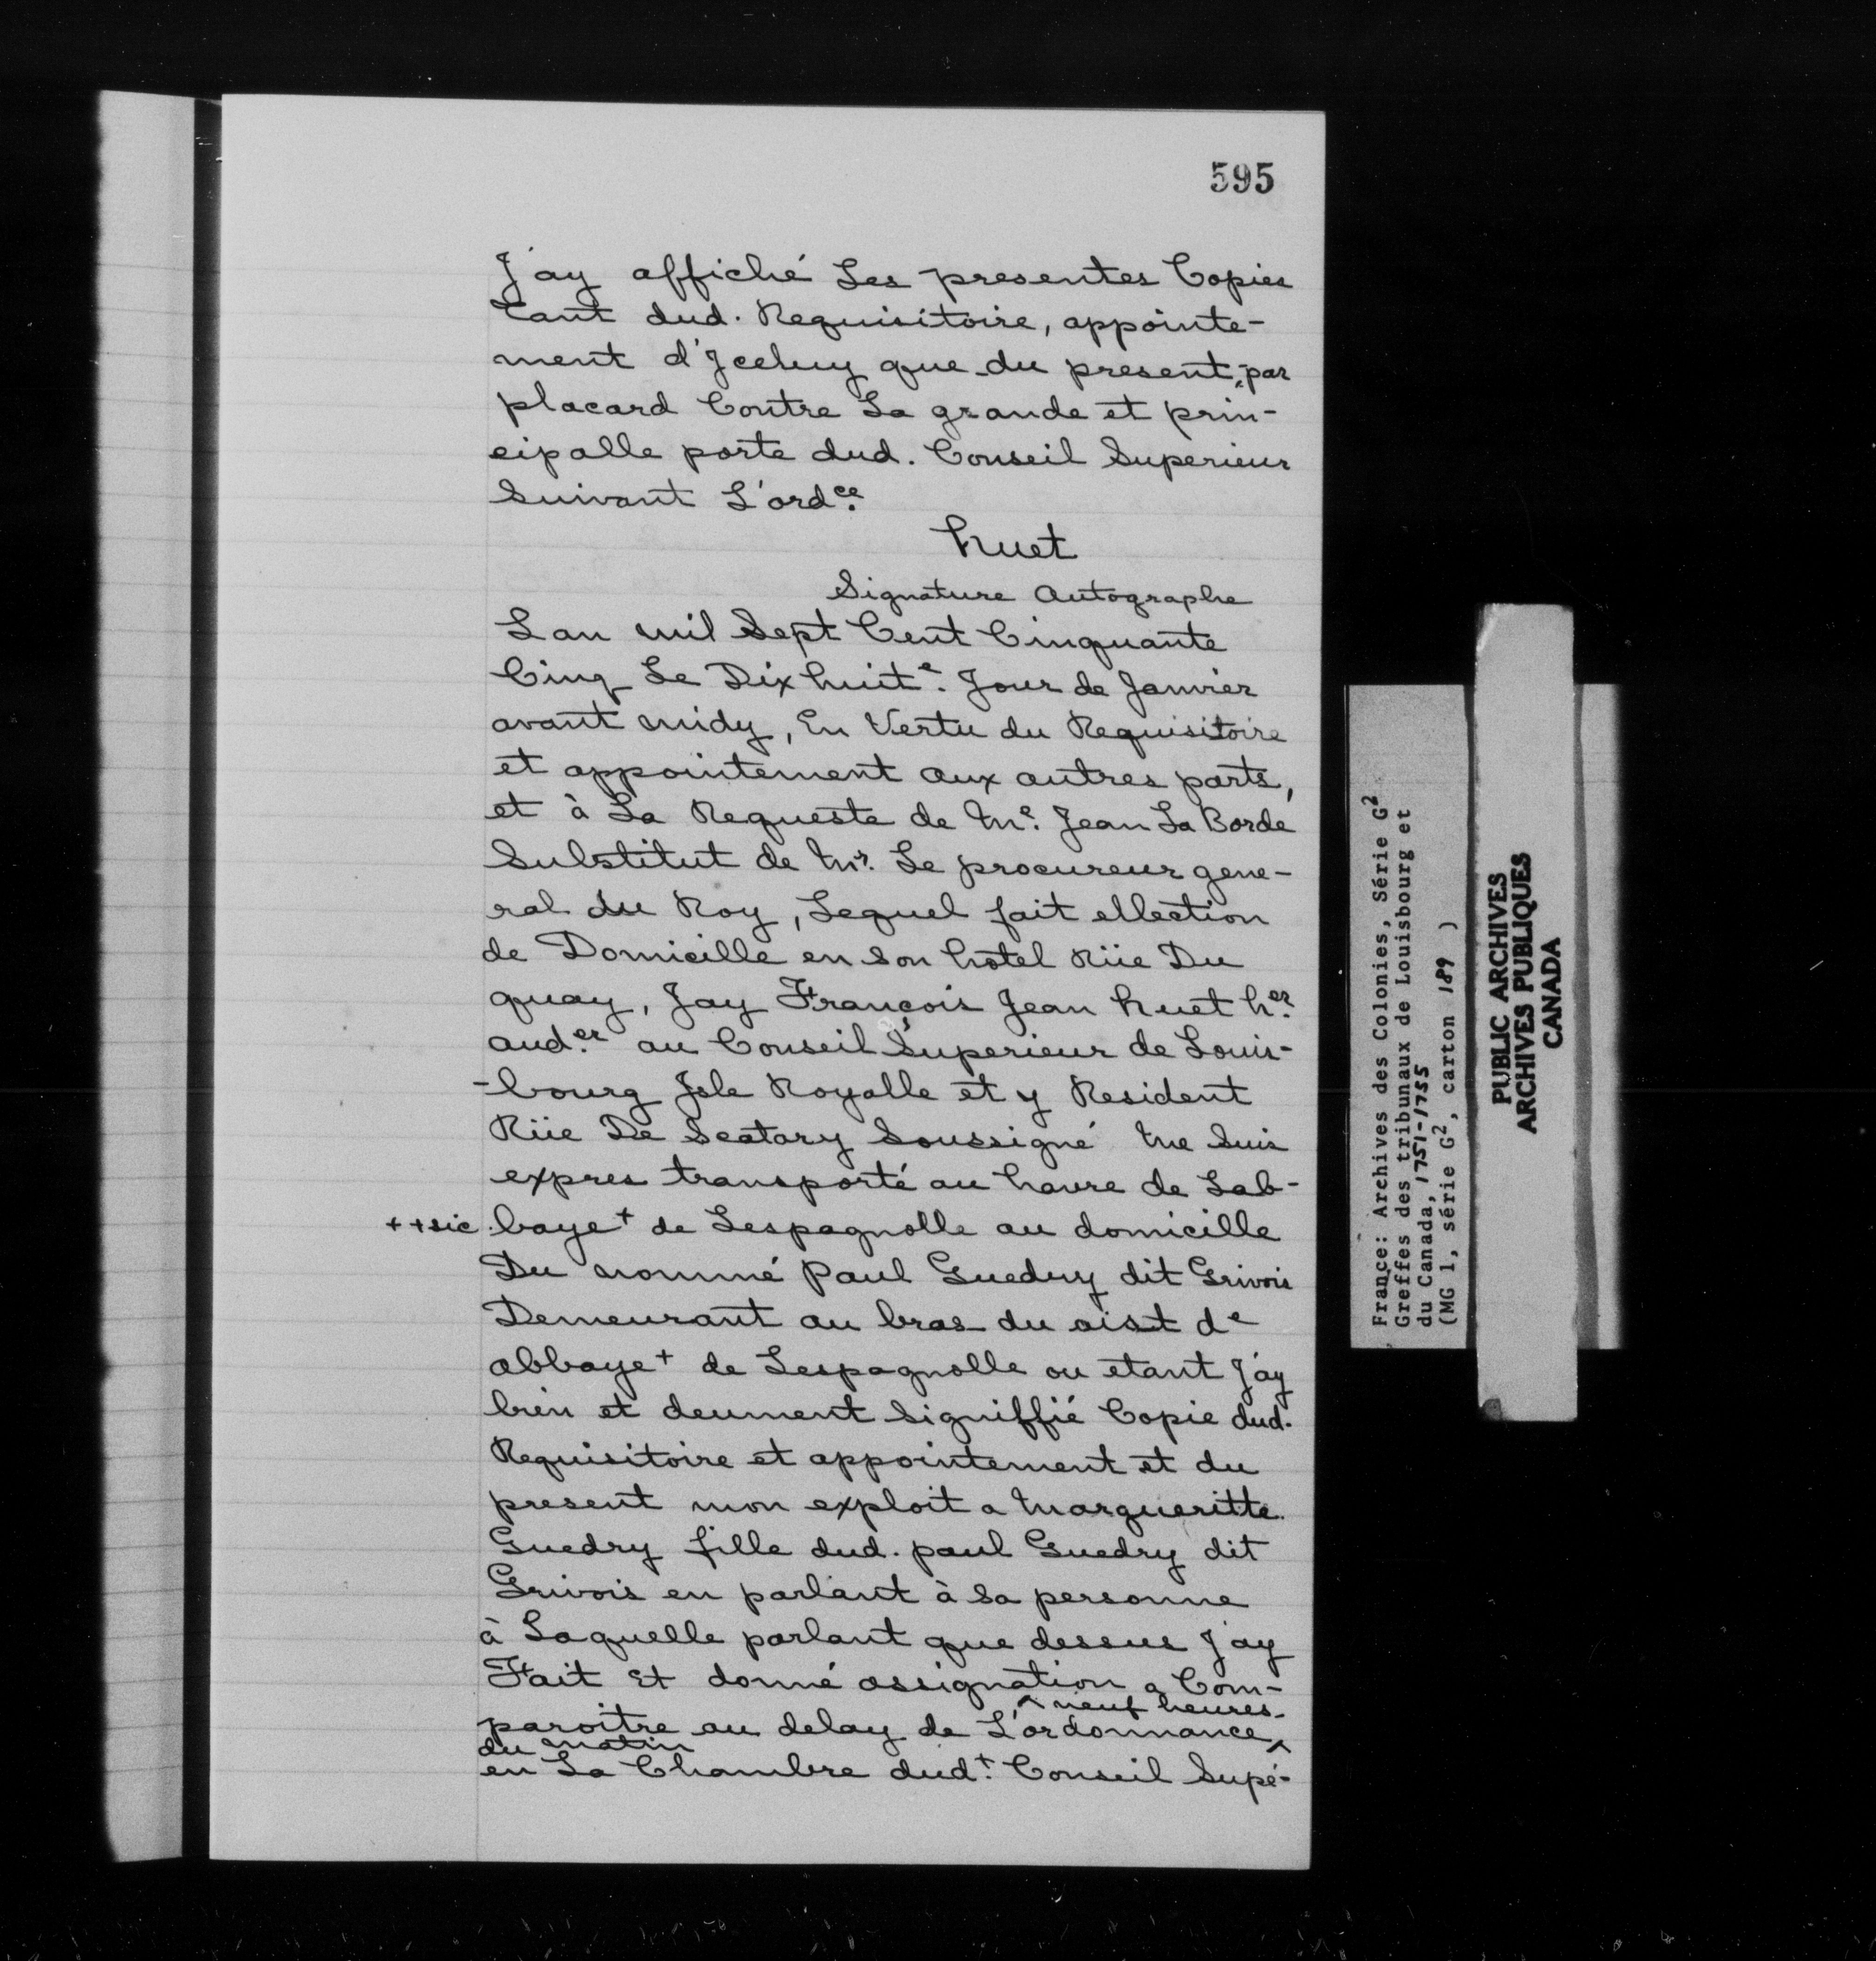 595
J'ay affiché Les presentes Copies
Tant dud. Requisitoire, appointe-
ment d'Jceluy que du present, par
placard Contre La grande et prin-
cipalle porte dud. Conseil Superieur
Suivant L'ordce.
huet
Signature Autographe
Lan mil Sept Cent Cinquante
Cinq Le Dix huite. Jour de Janvier
avant midy, En Vertu du Requisitoire
et appointement aux autres parts,
et à La Requeste de Me. Jean La Borde
Substitut de Mr. Le procureur gene-
ral du Roy, Lequel fait ellection
de Domicille en son hôtel Rüe Du
quay, Jay François Jean huet her.
auder. au Conseil Superieur de Louis-
-bourg Jsle Royalle et y Resident
Rüe De Scatary Soussigné Me Suis
expres transporté au havre de Lab-
++sic baye+ de Lespagnolle au domicille
Du nommé Paul Guedry dit Grivois
Demeurant au bras du oist de
abbaye+ de Lespagnolle ou etant J'ay
bien et deument Signiffié Copie dud.
Requisitoire et appointement et du
present mon exploit a Margueritte
Guedry fille dud. paul Guedry dit
Grivois en parlant à Sa personne
à Laquelle parlant que dessus J'ay
Fait Et donné assignation a Com-
^ neuf heures
paroitre au delay de L'ordonnance ^
du matin
en La Chambre dudt. Conseil Supé-
France: Archives des Colonies, Série G2
Greffes des tribunaux de Louisbourg et
du Canada, 1751-1755
(MG 1, série G2, carton 189 )
PUBLIC ARCHIVES
ARCHIVES PUBLIQUES
CANADA